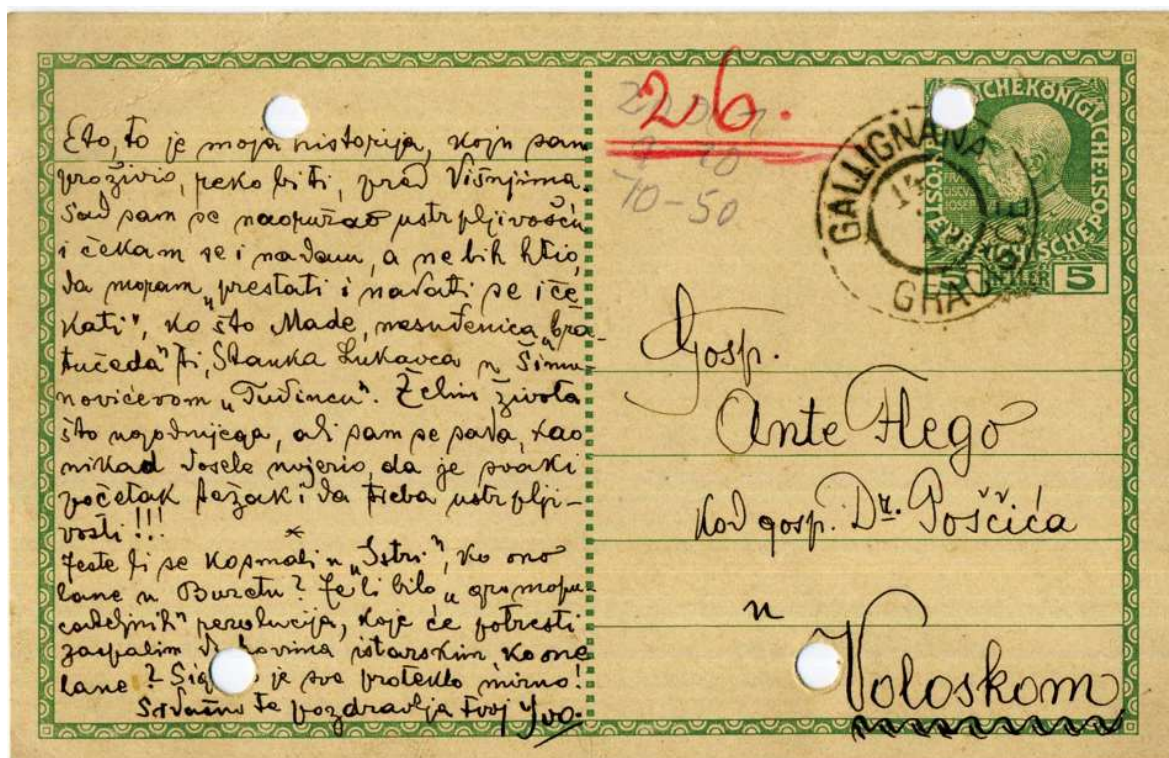 Eto, to je moja historija, koju sam
proživio, reko bi ti, pred Višnjima.
Sad sam se naoružao ustrpljivošću
i čekam se i nadam, a ne bih htio,
da moram „prestati i nadati se i če
kati", ko što Made, nesuđenica „bra-
tučeda" ti, Stanka Lukavca u Šimu
novićevom „Tuđincu". Želim života
što ugodnijega, ali sam se sada, kao
nikad dosele uvjerio, da je svaki
početak težak i da treba ustrplji-
vosti!!!
*
Jeste li se kosmali u „Istri", ko ono
lane u Buzetu? Je li bilo „gromopu
cateljnih" rezolucija, koje će potresti
zaspalim duhovima istarskim, ko one
lane? Sigurno je sve proteklo mirno!
Srdačno te pozdravlja tvoj Ivo.
26.
9-20
10-50
GALLIGNANA
GRAČIŠĆE
14
5 HELLER 5
Gosp.
Ante Flego
kod gosp. Dr. Pošćića
u
Voloskom